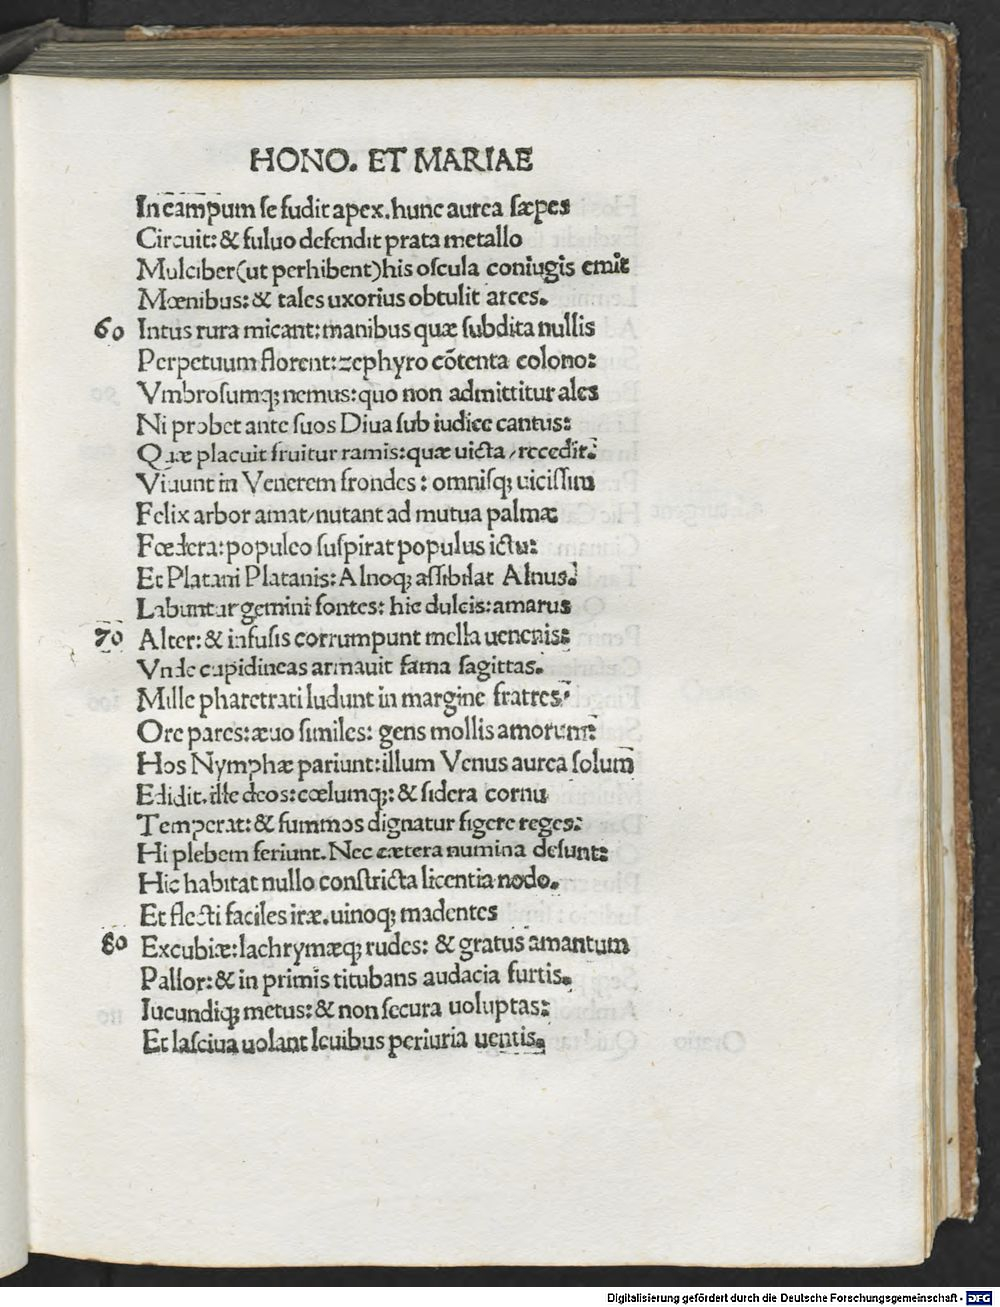 HONO. ET MARIAE
In campum se fudit apex. hunc aurea sæpes
Circuit: & fuluo defendit prata metallo
Mulciber (ut perhibent) his oscula coniugis emit
Mœnibus: & tales uxorius obtulit arces.
60 Intus rura micant: manibus quæ subdita nullis
Perpetuum florent: zephyro cõtenta colono:
Vmbrosumq; nemus: quo non admittitur ales
Ni probet ante suos Diua sub iudice cantus:
Quæ placuit fruitur ramis: quæ uicta / recedit:
Viuunt in Venerem frondes: omnisq; uicissim
Felix arbor amat / nutant ad mutua palmæ
Fœdera: populeo suspirat populus ictu:
Et Platani Platanis: Alnoq; assibilat Alnus.
Labuntur gemini fontes: hic dulcis: amarus
70 Alter: & infusis corrumpunt mella uenenis:
Vnde cupidineas armauit fama sagittas.
Mille pharetrati ludunt in margine fratres:
Ore pares: æuo similes: gens mollis amorum:
Hos Nymphæ pariunt: illum Venus aurea solum
Edidit. ille deos: cœlumq;: & sidera cornu
Temperat: & summos dignatur figere reges:
Hi plebem feriunt. Nec cætera numina desunt:
Hic habitat nullo constricta licentia nodo.
Et flecti faciles iræ. uinoq; madentes
80 Excubiæ: lachrymæq; rudes: & gratus amantum
Pallor: & in primis titubans audacia furtis.
Iucundiq; metus: & non secura uoluptas:
Et lasciua uolant leuibus periuria uentis.
Digitalisierung gefördert durch die Deutsche Forschungsgemeinschaft - DFG